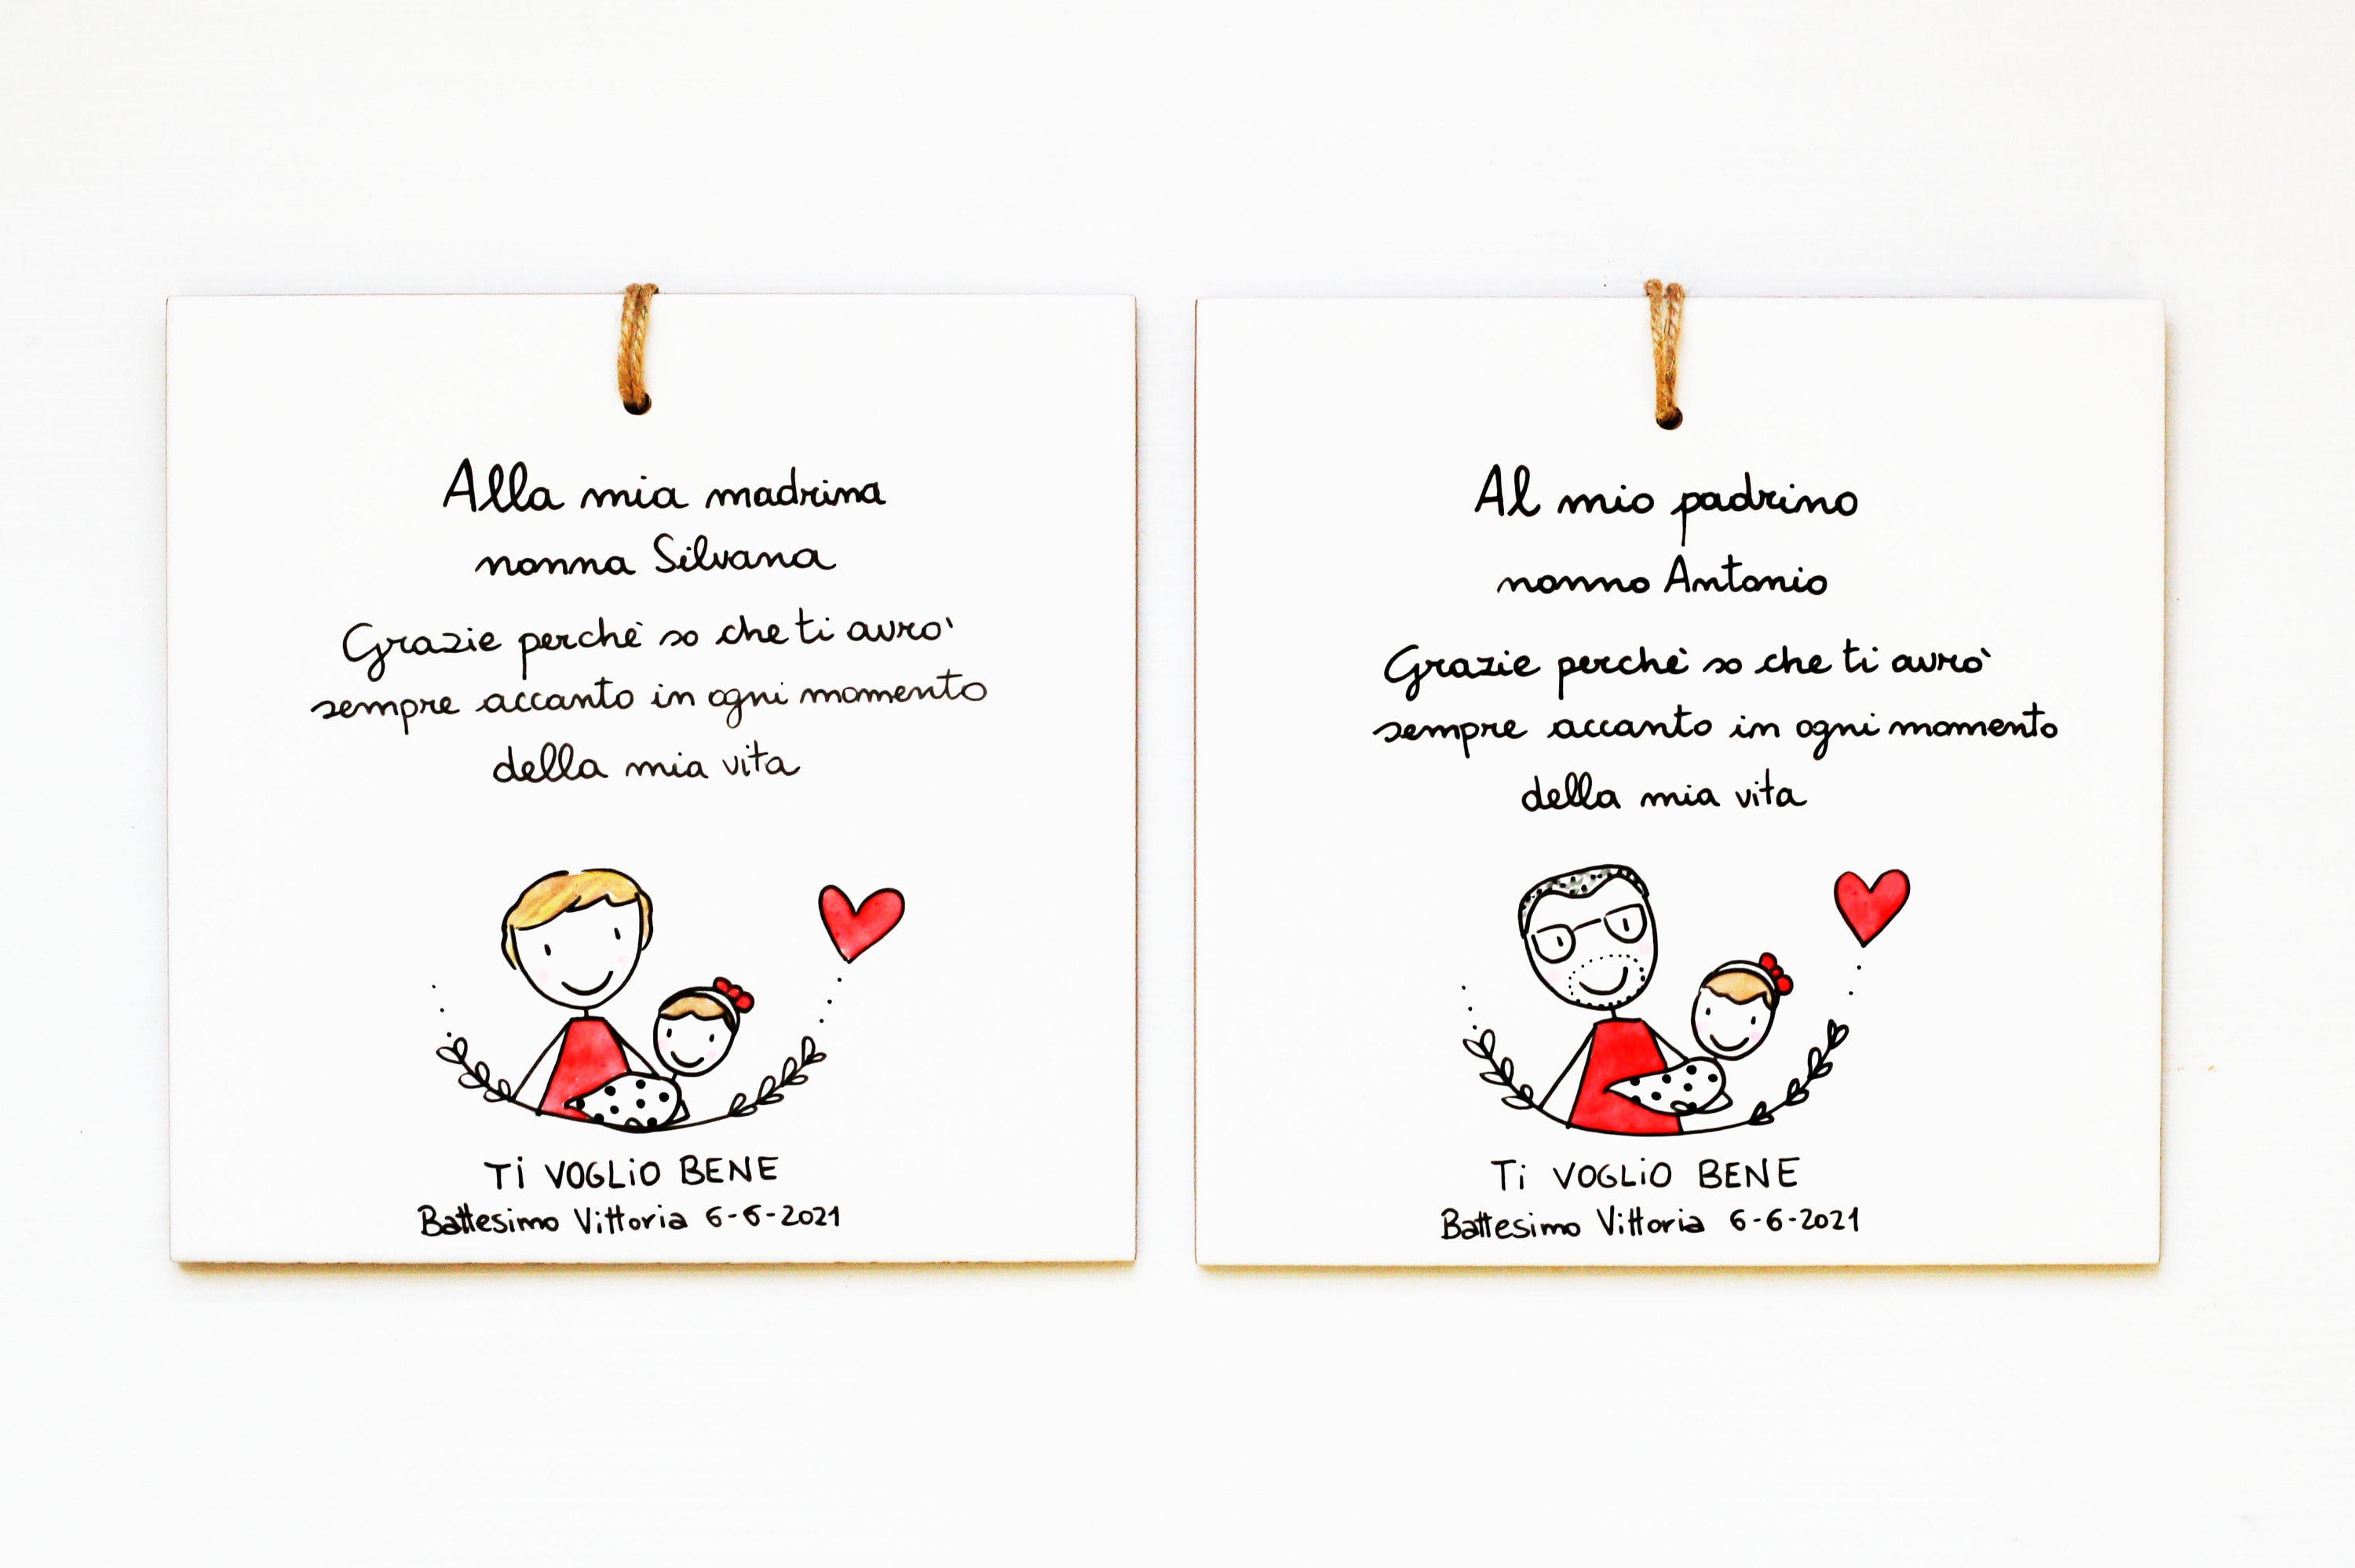 Alla mia madrina
nonna Silvana
Grazie perchè so che ti avrò
sempre accanto in ogni momento
della mia vita
Ti VOGLiO BENE
Battesimo Vittoria 6-6-2021
Al mio padrino
nonno Antonio
Grazie perchè so che ti avrò
sempre accanto in ogni momento
della mia vita
Ti VOGLiO BENE
Battesimo Vittoria 6-6-2021